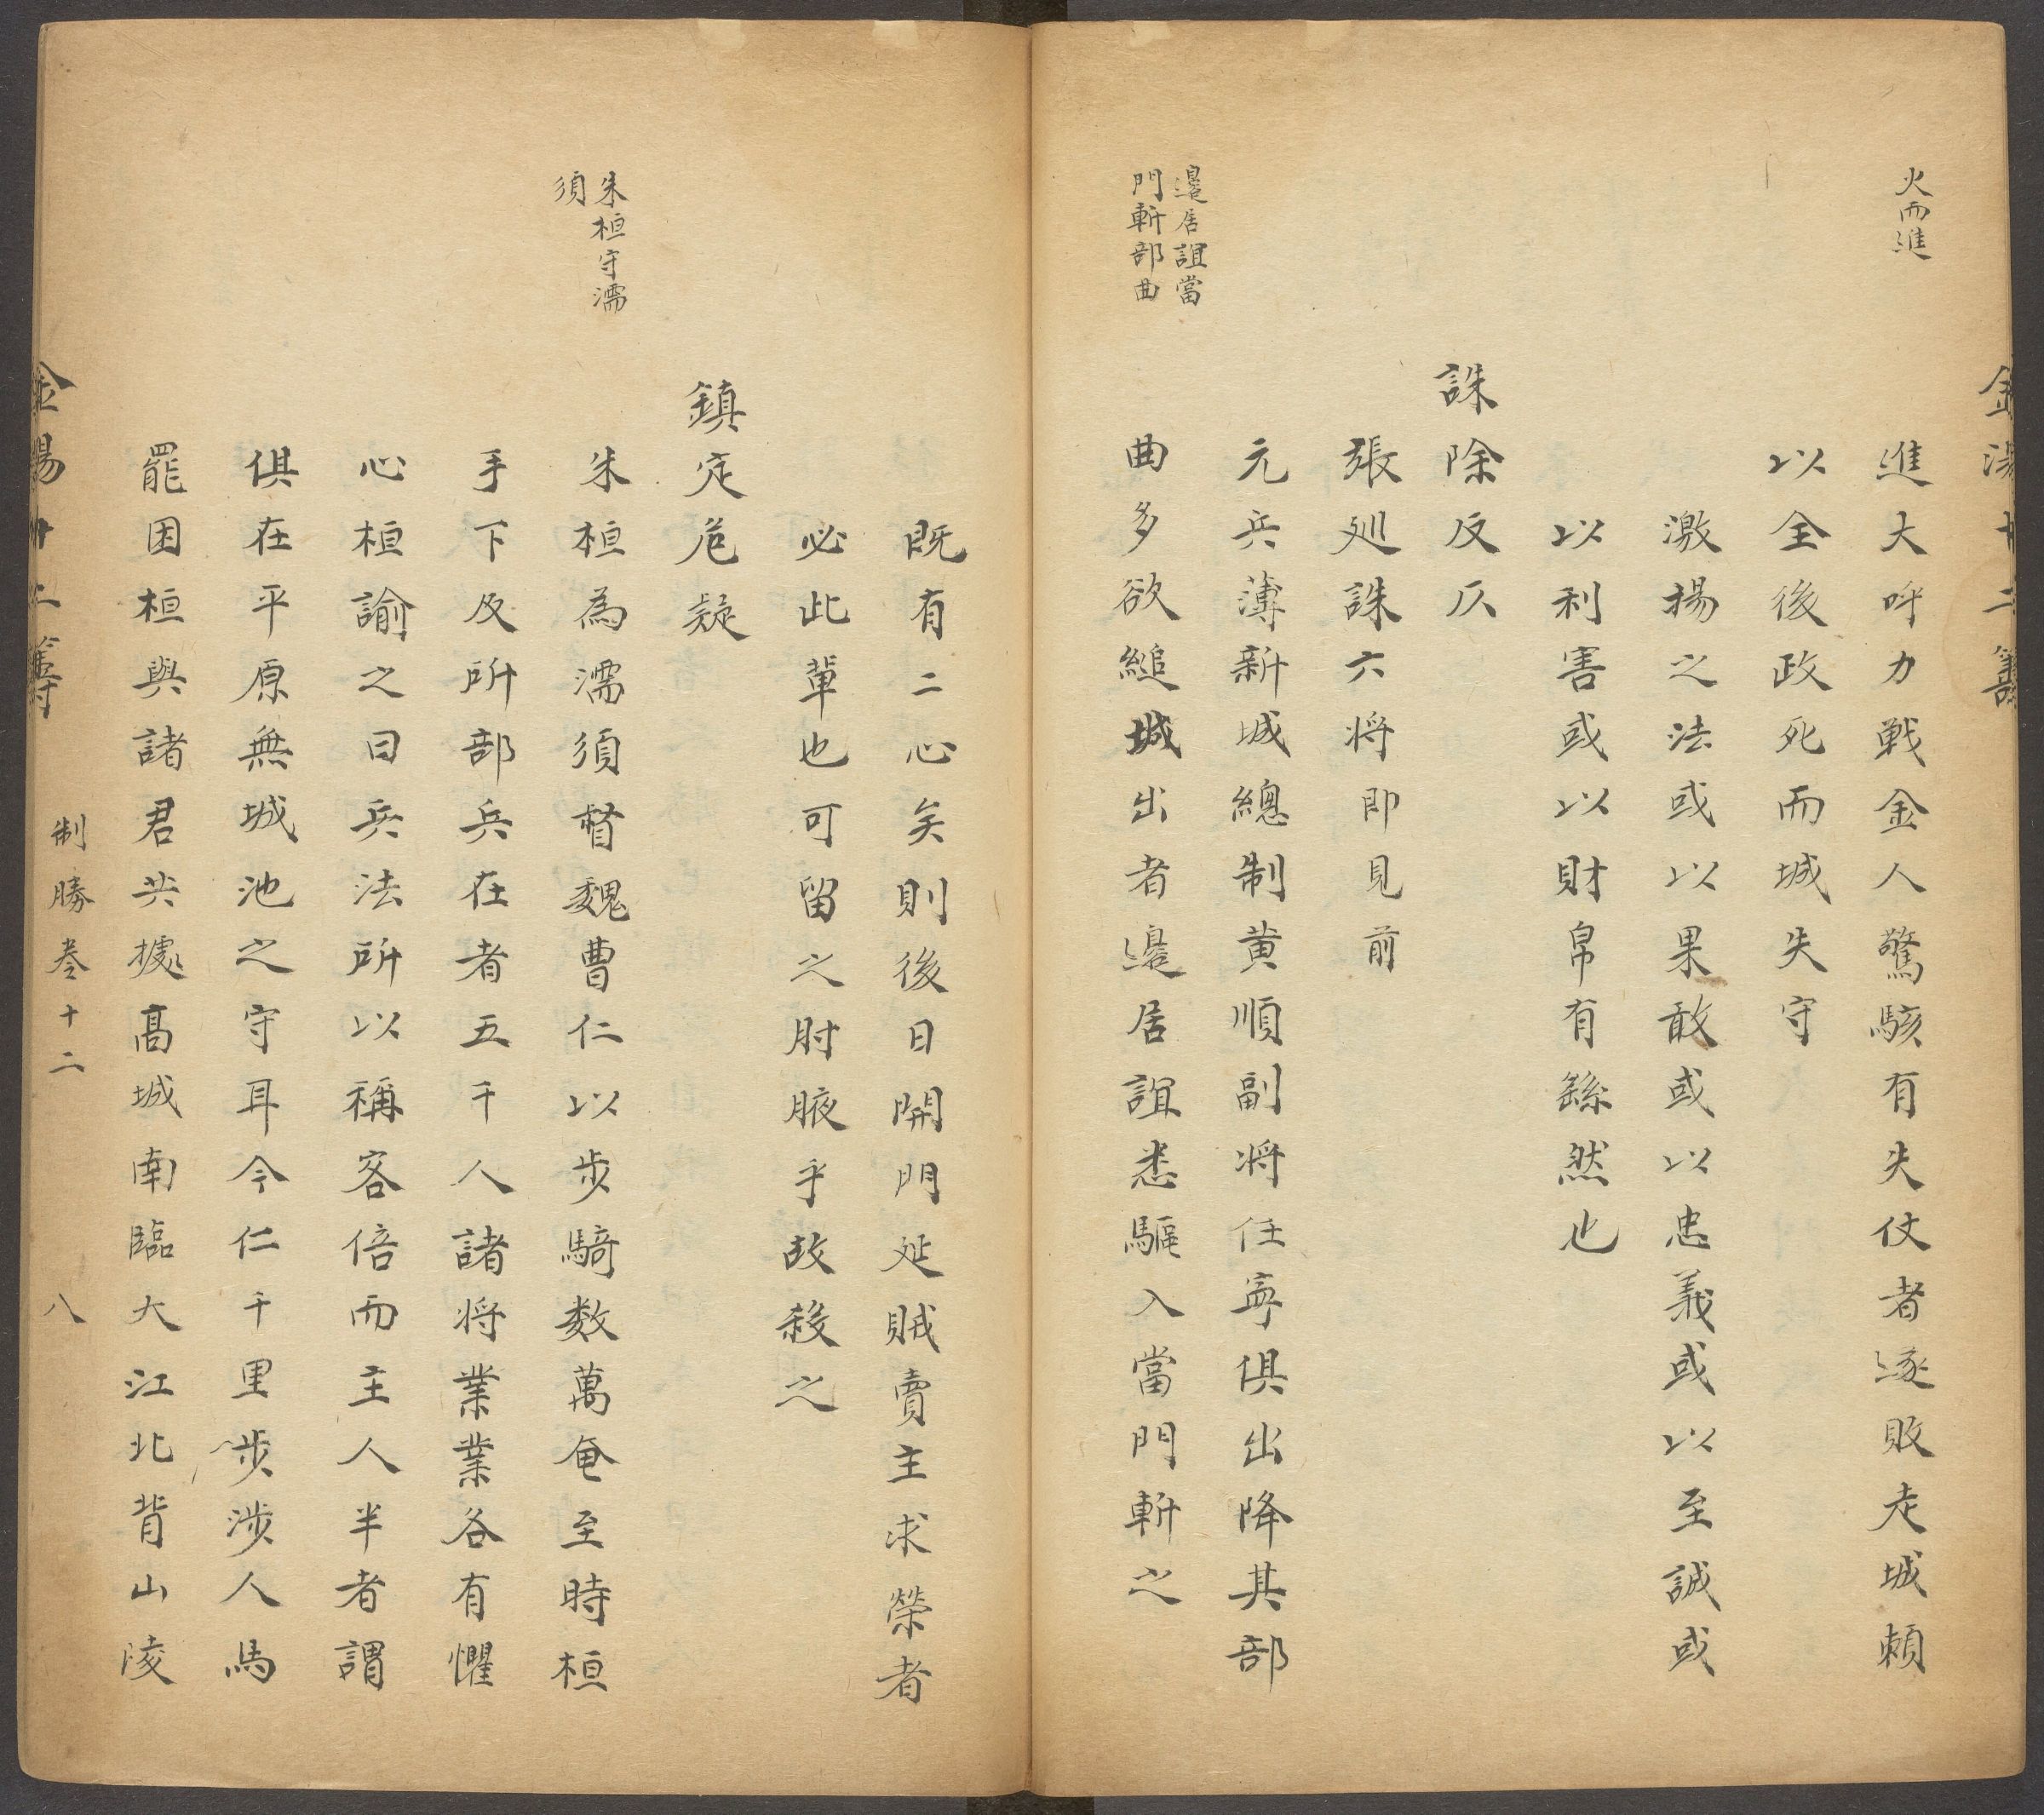 金湯十二籌
火而進
進大呼力戰金人驚駭有失仗者遂敗走城頼
以全後政死而城失守
激揚之法或以果敢或以忠義或以至誠或
以利害或以財帛有繇然也
誅除反仄
張廵誅六将即見前
元兵薄新城總制黄順副将任寧俱出降其部
邉居誼當
門斬部曲
曲多欲縋城出者邉居誼悉驅入當門斬之
既有二心矣則後日開門延賊賣主求榮者
必此軰也可留之肘腋乎故殺之
鎮定危疑
朱桓守濡
須
朱桓為濡須督魏曹仁以步騎数萬奄至時桓
手下及所部兵在者五千人諸将業業各有懼
心桓諭之曰兵法所以稱客倍而主人半者謂
俱在平原無城池之守耳今仁千里步涉人馬
罷困桓與諸君共據髙城南臨大江北背山陵
金湯十二籌
制勝卷十二
八